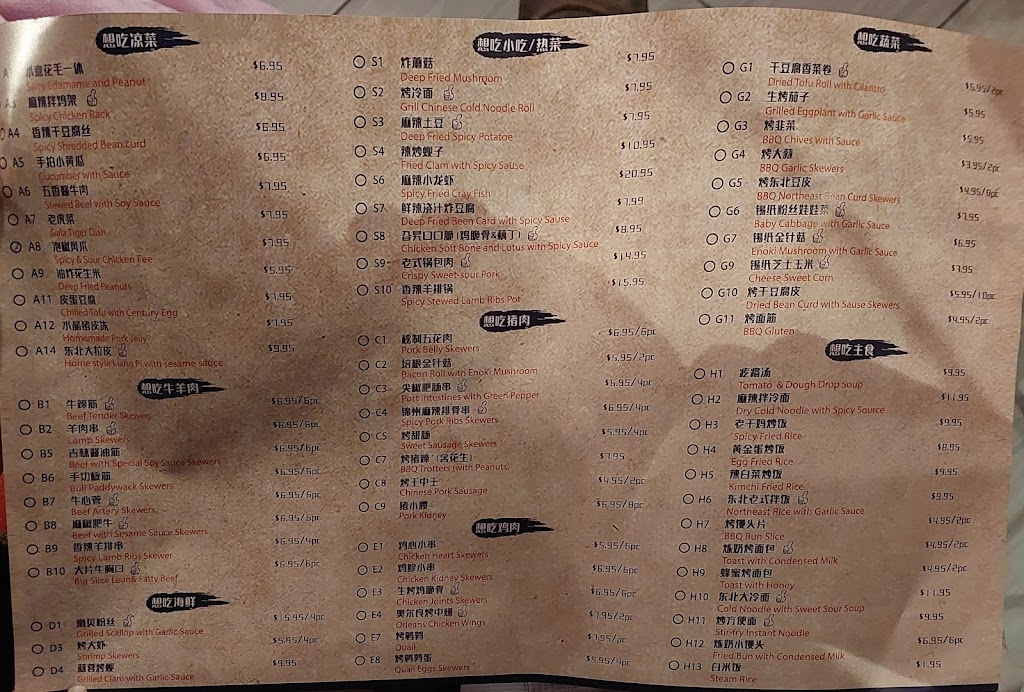 想吃凉菜
水煮花毛一体 $6.95
Salty Edamame and Peanut
A3 麻辣拌鸡架 $8.95
Spicy Chicken Rack
A4 香辣干豆腐丝 $6.95
Spicy Shredded Bean Curd
A5 手拍小黄瓜 $6.95
Cucumber with Sauce
A6 五香酱牛肉 $7.95
Stewed Beef with Soy Sauce
A7 老虎菜 $7.95
Gala Tiger Dish
A8 泡椒凤爪 $7.95
Spicy & Sour Chicken Fee
A9 油炸花生米 $5.95
Deep Fried Peanuts
A11 皮蛋豆腐 $7.95
Chilled Tofu with Century Egg
A12 水晶猪皮冻 $7.95
Homemade Pork Jelly
A14 东北大拉皮 $9.95
Home style Liang Pi with sesame sauce
想吃牛羊肉
B1 牛蹄筋 $6.95/6pc
Beef Tender Skewers
B2 羊肉串 $6.95/6pc
Lamb Skewers
B5 吉林酱油筋 $6.95/6pc
Beef with Special Soy Sauce Skewers
B6 手切板筋 $6.95/6pc
Bull Paddywack Skewers
B7 牛心管 $6.95/6pc
Beef Artery Skewers
B8 麻椒肥牛 $6.95/5pc
Beef with Sesame Sauce Skewers
B9 香辣羊排串 $6.95/4pc
Spicy Lamb Ribs Skewer
B10 大片牛胸口 $6.95/6pc
Big Slice Lean& Fatty Beef
想吃海鲜
D1 扇贝粉丝 $15.95/4pc
Grilled Scallop with Garlic Sauce
D3 烤大虾 $5.95/4pc
Shrimp Skewers
D4 蒜蓉烤蚬 $9.95
Grilled Clam with Garlic Sauce
想吃小吃/热菜
S1 炸蘑菇 $7.95
Deep Fried Mushroom
S2 烤冷面 $7.95
Grill Chinese Cold Noodle Roll
S3 麻辣土豆 $7.95
Deep Fried Spicy Potatoe
S4 辣炒蚬子 $10.95
Fried Clam with Spicy Sause
S6 麻辣小龙虾 $20.95
Spicy Fried Cray Fish
S7 鲜辣浇汁炸豆腐 $7.99
Deep Fried Been Card with Spicy Sause
S8 谷昇口口脆 (鸡脆骨&藕丁) $8.95
Chicken Soft Bone and Lotus with Spicy Sause
S9 老式锅包肉 $14.95
Crispy Sweet-sour Pork
S10 香辣羊排锅 $15.95
Spicy Stewed Lamb Ribs Pot
想吃猪肉
C1 椒制五花肉 $6.95/6pc
Pork Belly Skewers
C2 培根金针菇 $5.95/2pc
Bacon Roll with Enoki Mushroom
C3 尖椒肥肠串 $6.95/4pc
Port Intestines with Green Pepper
C4 锦州麻辣排骨串 $6.95/4pc
Spicy Pork Ribs Skewers
C5 烤甜肠 $5.95/4pc
Sweet Sausage Skewers
C7 烤猪蹄 (含花生) $7.95
BBQ Trotters (with Peanuts)
C8 烤王中王 $4.95/2pc
Chinese Pork Sausage
C9 猪小腰 $6.95/8pc
Pork Kidney
想吃鸡肉
E1 鸡心小串 $5.95/6pc
Chicken Heart Skewers
E2 鸡胗小串 $6.95/6pc
Chicken Kidney Skewers
E3 生烤鸡脆骨 $6.95/6pc
Chicken Joints Skewers
E4 奥尔良烤中翅 $7.95/2pc
Orleans Chicken Wings
E7 烤鹌鹑 $7.95/pc
Quail
E8 烤鹌鹑蛋 $5.95/4pc
Quail Eggs Skewers
想吃蔬菜
G1 干豆腐香菜卷 $5.95/2pc
Dried Tofu Roll with Cilantro
G2 生烤茄子 $5.95
Grilled Eggplant with Garlic Sauce
G3 烤韭菜 $5.95
BBQ Chives with Sauce
G4 烤大蒜 $3.95/2pc
BBQ Garlic Skewers
G5 烤东北豆皮 $4.95/8pc
BBQ Northeast Bean Curd Skewers
G6 锡纸粉丝娃娃菜 $7.95
Baby Cabbage with Garlic Sauce
G7 锡纸金针菇 $6.95
Enoki Mushroom with Garlic Sauce
G9 锡纸芝士玉米 $7.95
Cheese Sweet Corn
G10 烤干豆腐皮 $5.95/10pc
Dried Bean Curd with Sause Skewers
G11 烤面筋 $4.95/2pc
BBQ Gluten
想吃主食
H1 疙瘩汤 $9.95
Tomato & Dough Drop Soup
H2 麻辣拌冷面 $11.95
Dry Cold Noodle with Spicy Source
H3 老干妈炒饭 $9.95
Spicy Fried Rice
H4 黄金蛋炒饭 $8.95
Egg Fried Rice
H5 辣白菜炒饭 $9.95
Kimchi Fried Rice
H6 东北老式拌饭 $9.95
Northeast Rice with Garlic Sauce
H7 烤馒头片 $4.95/2pc
BBQ Bun Slice
H8 炼奶烤面包 $4.95/2pc
Toast with Condensed Milk
H9 蜂蜜烤面包 $4.95/2pc
Toast with Honey
H10 东北大冷面 $11.95
Cold Noodle with Sweet Sour Soup
H11 炒方便面 $9.95
Stir-fry Instant Noodle
H12 炼奶小馒头 $6.95/6pc
Fried Bun with Condensed Milk
H13 白米饭 $1.95
Steam Rice